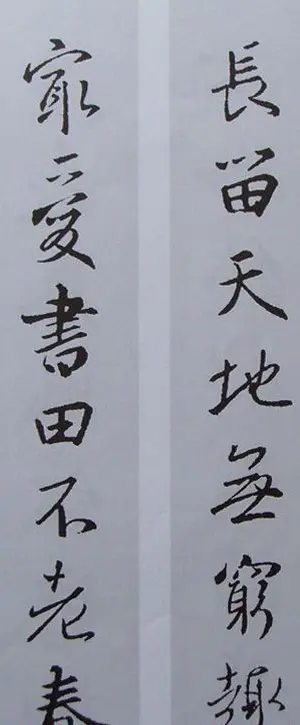 長留天地無窮趣
最愛書田不老春